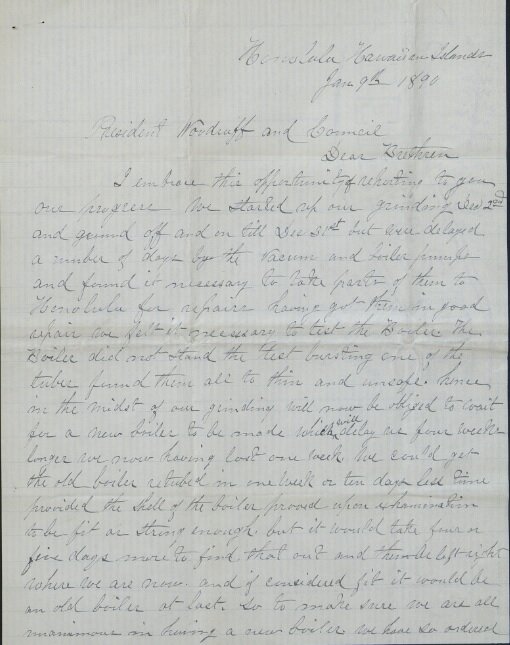 Honolulu Hawaiian Islands
Jan 9th 1890
President Woodruff and Council
Dear Brethren
I embrace this opportunity of reporting to you
our progress We started up our grinding Dec 2nd
and ground off and on till Dec 31st but were delayed
a number of days by the vacum and boiler pumps
and found it necessary to take parts of them to
Honolulu for repairs having got them in good
repair we felt it necessary to test the Boiler the
Boiler did not stand the test bursting one of the
tubes found them all to thin and unsafe, hence
in the midst of our grinding will now be obliged to wait
for a new boiler to be made which will delay us four weeks
longer we now having lost one week. We could get
the old boiler retubed in one week or ten days less time
provided the shell of the boiler proved upon examination
to be fit or strong enough, but it would take four or
five days more to find that out and then be left right
where we are now. and if considered fit it would be
an old boiler at last. So to make sure we are all
unanimous in having a new boiler we have so ordered